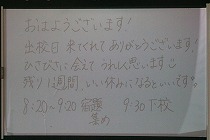 おはようございます!
出校日 来てくれて ありがとうございます!
ひさびさに会えて うれしい思います☺
残り1週間、いい休みになるといいです。
8:20~9:20 宿題 9:30 下校
集め